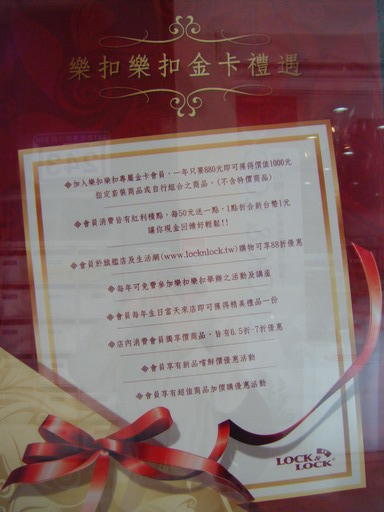 樂扣樂扣金卡禮遇
◈加入樂扣樂扣專屬金卡會員，一年只要880元即可獲得價值1000元
指定套裝商品或自行組合之商品。(不含特價商品)
◈會員消費皆有紅利積點，每50元送一點，1點折合新台幣1元
讓你現金回饋好輕鬆!!
◈會員於旗艦店及生活網(www.locknlock.tw)購物可享88折優惠
◈每年可免費參加樂扣樂扣舉辦之活動及講座
◈會員每年生日當天來店即可獲得精美禮品一份
◈店內消費會員獨享價商品，皆有6.5折-7折優惠
◈會員享有新品嚐鮮價優惠活動
◈會員享有超值商品加價購優惠活動
LOCK &
LOCK